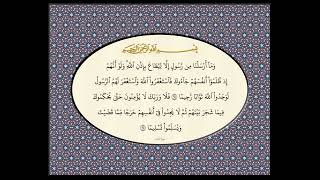 بسم الله الرحمن الرحيم
وَمَا أَرْسَلْنَا مِن رَّسُولٍ إِلَّا لِيُطَاعَ بِإِذْنِ اللَّهِ وَلَوْ أَنَّهُمْ
إِذ ظَّلَمُوا أَنفُسَهُمْ جَاءُوكَ فَاسْتَغْفَرُوا اللَّهَ وَاسْتَغْفَرَ لَهُمُ الرَّسُولُ
لَوَجَدُوا اللَّهَ تَوَّابًا رَّحِيمًا ۝ فَلَا وَرَبِّكَ لَا يُؤْمِنُونَ حَتَّىٰ يُحَكِّمُوكَ
فِيمَا شَجَرَ بَيْنَهُمْ ثُمَّ لَا يَجِدُوا فِي أَنفُسِهِمْ حَرَجًا مِّمَّا قَضَيْتَ
وَيُسَلِّمُوا تَسْلِيمًا ۝